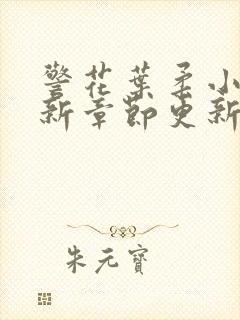 警花葉柔小
新章節更新
朱元寶